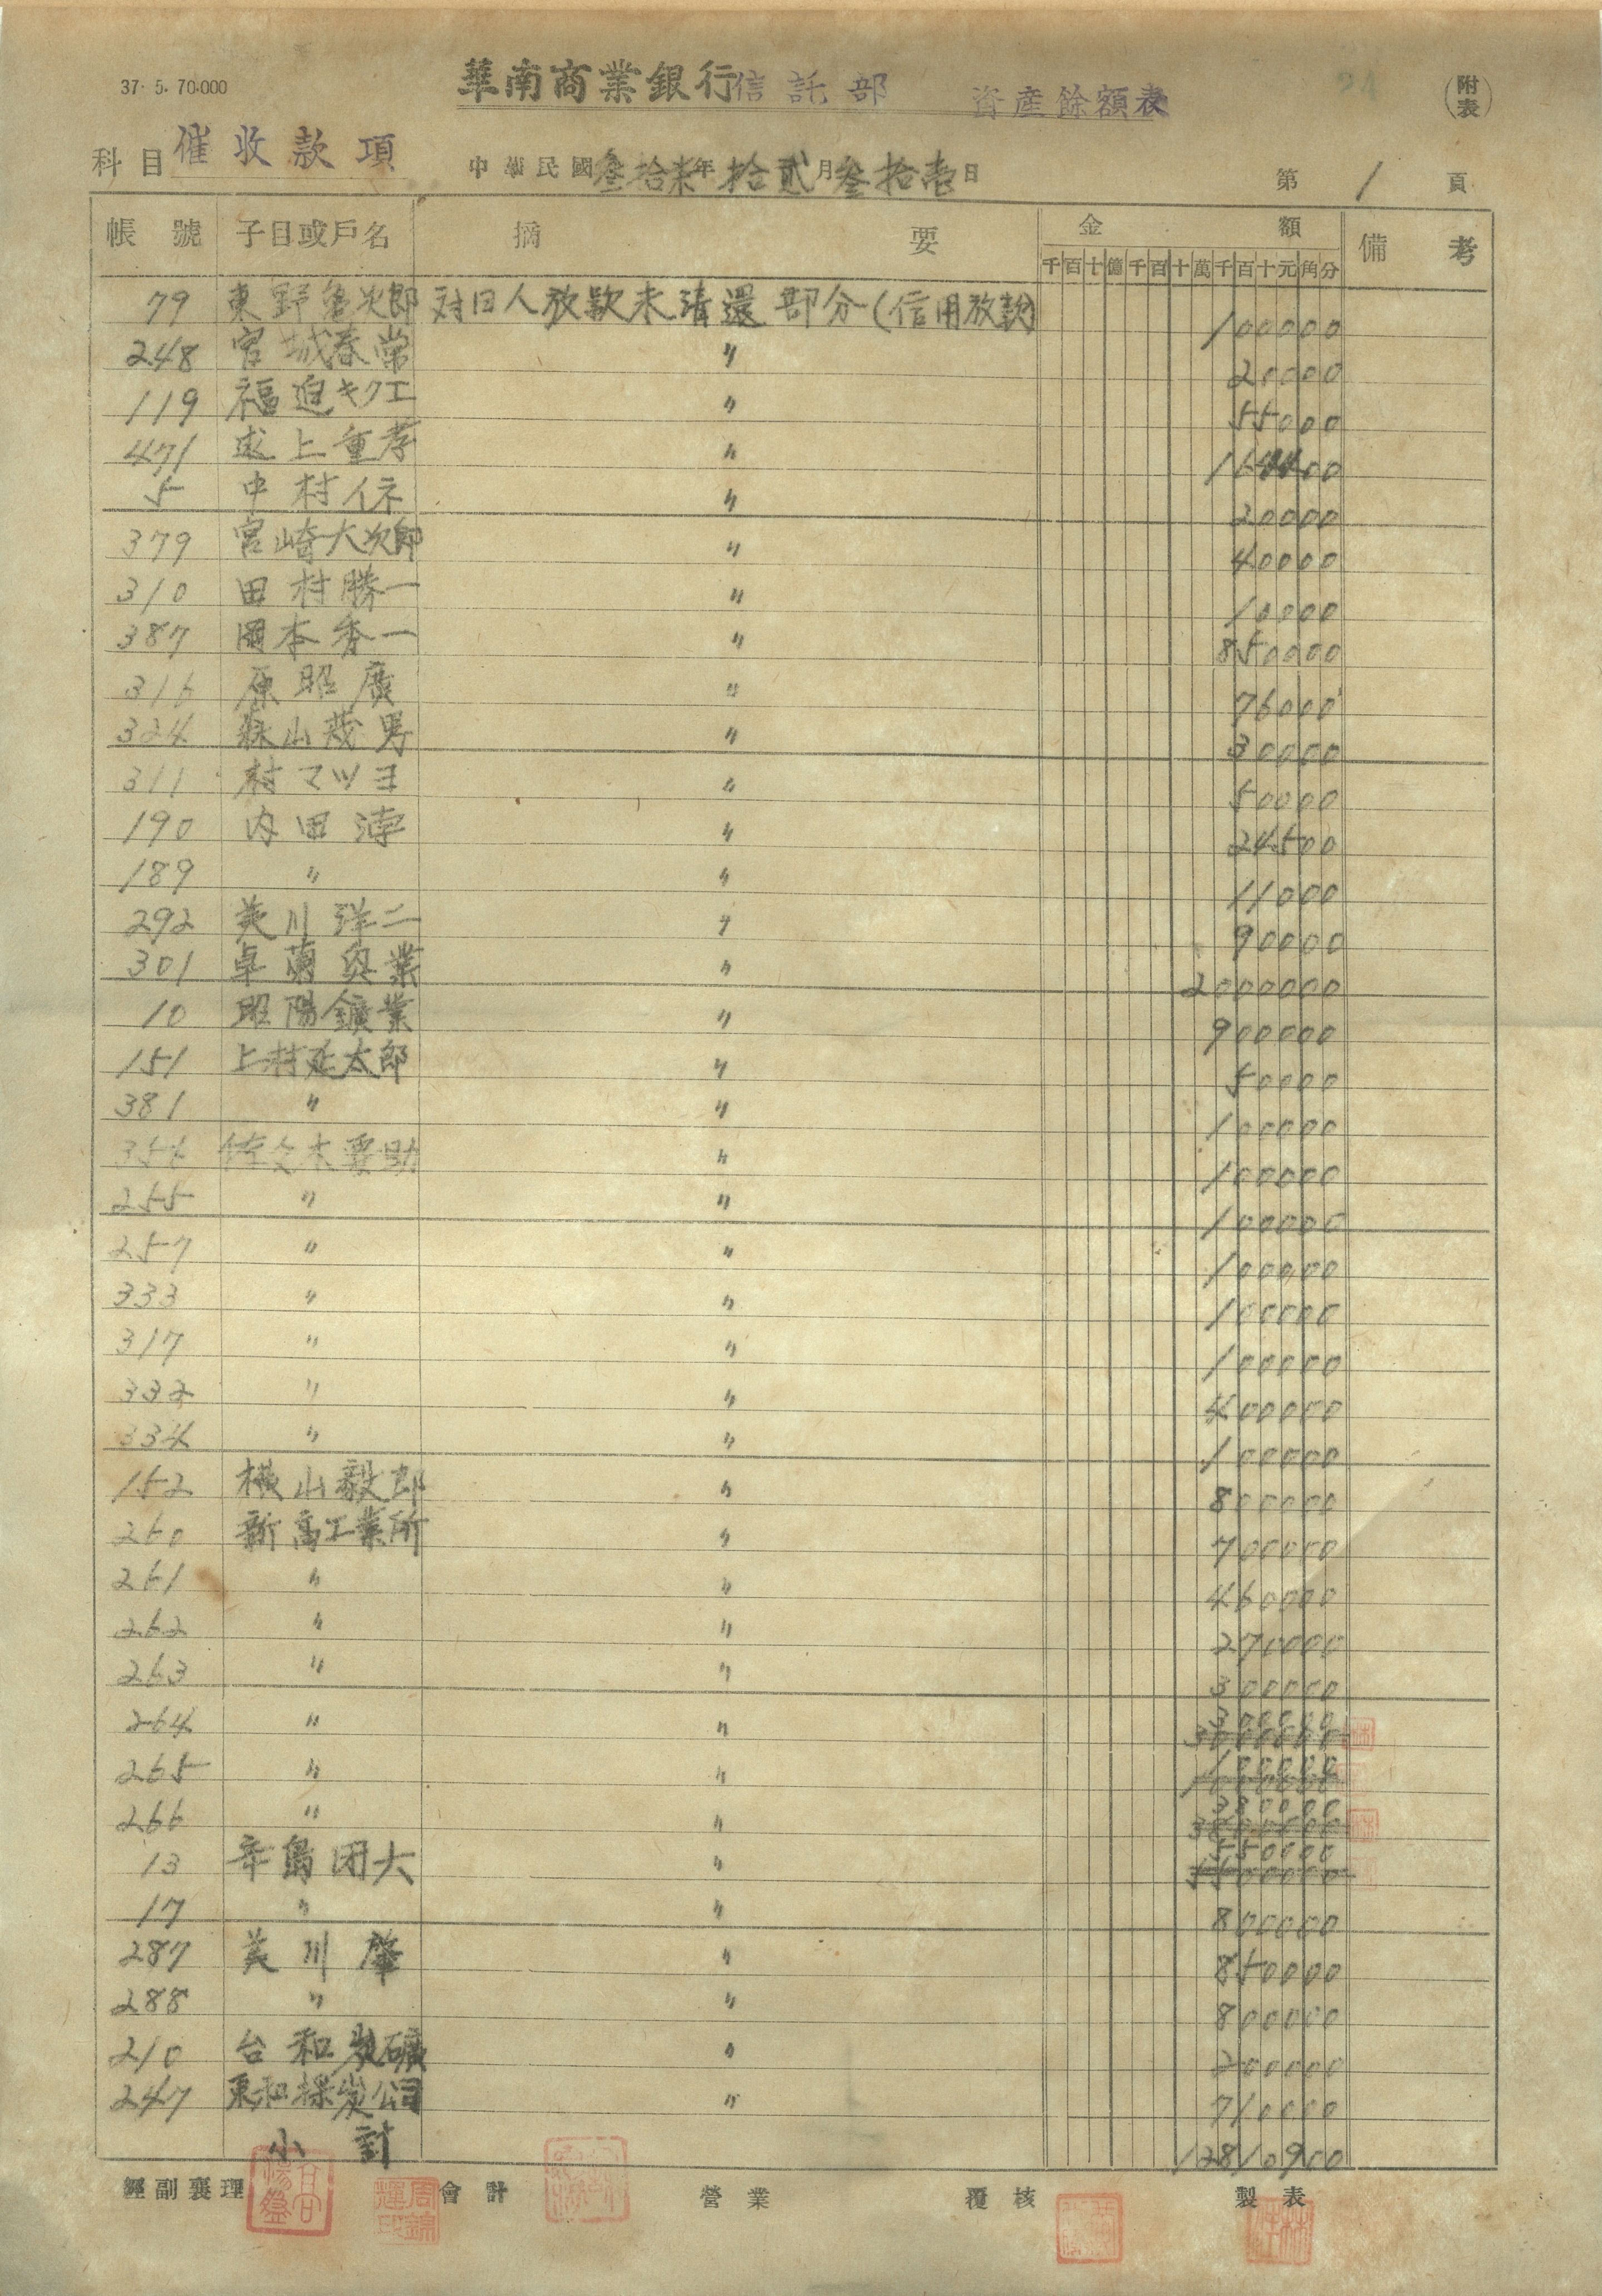 37. 5. 70.000
華南商業銀行信託部 資産餘額表
(附表)
科目 催收款項
中華民國叁拾柒年拾貳月叁拾壱日
第 1 頁
帳號 子目或戶名 摘要 金額 備考
千百十億千百十萬千百十元角分
79 東野 次郎 对日人放款未清還部分(信用放款) 100000
248 宮城春常 〃 20000
119 福迫キクエ 〃 55000
471 上重孝 〃
5 中村イネ 〃 20000
379 宮崎大次郎 〃 40000
310 田村勝一 〃 10000
387 岡本秀一 〃 850000
316 原昭廣 〃 76000
324 森山茂男 〃 30000
311 村マツヨ 〃 50000
190 内田 〃 24500
189 〃 〃 11000
292 美川洋二 〃 90000
301 卓蘭興業 〃 2000000
10 昭陽鑛業 〃 900000
151 上村延太郎 〃 50000
381 〃 〃 100000
356 佐々木要助 〃 100000
255 〃 〃 100000
257 〃 〃 100000
333 〃 〃 100000
317 〃 〃 100000
332 〃 〃 400000
334 〃 〃 100000
152 横山毅郎 〃 800000
260 新高工業所 〃 700000
261 〃 〃 460000
262 〃 〃 270000
263 〃 〃 300000
264 〃 〃 300000
265 〃 〃 100000
266 〃 〃 380000
13 辛島団大 〃 550000
17 〃 〃 800000
287 美川肇 〃 850000
288 〃 〃 800000
210 台和炭礦 〃 200000
247 東和採炭公司 〃 710000
小計 12810900
經副襄理 會計 營業 覆核 製表